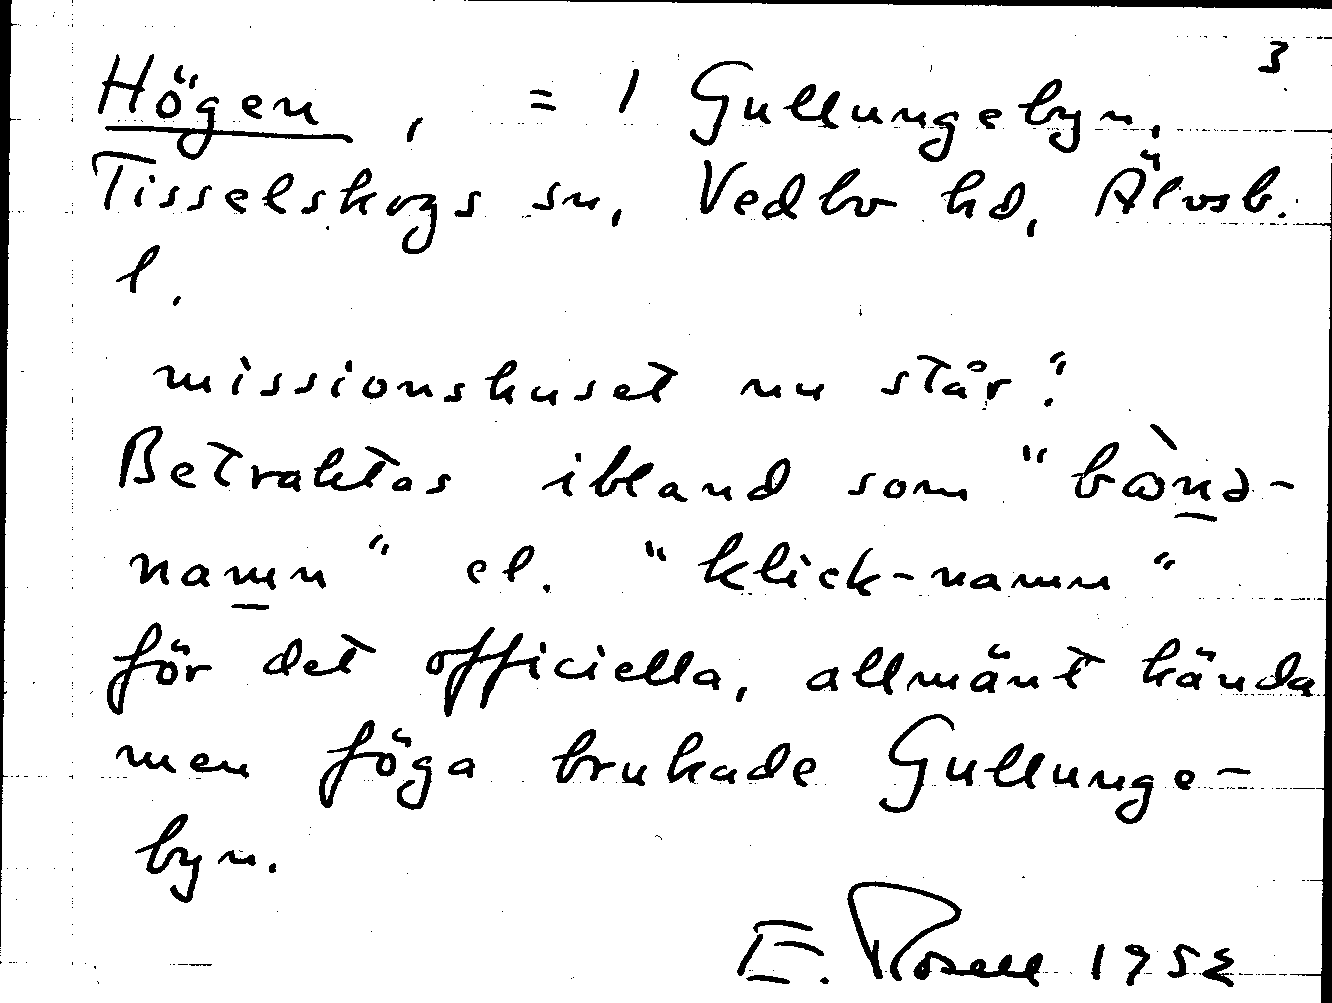 3
Högen, = 1 Gullungebyn,
Tisselskogs sn, Vedbo hd, Älvsb.
l.
missionshuset nu står".
Betraktas ibland som "bònə-
namn" el. "klick-namn"
för det officiella, allmänt kända
men föga brukade Gullunge-
byn.
E. Rosell 1952